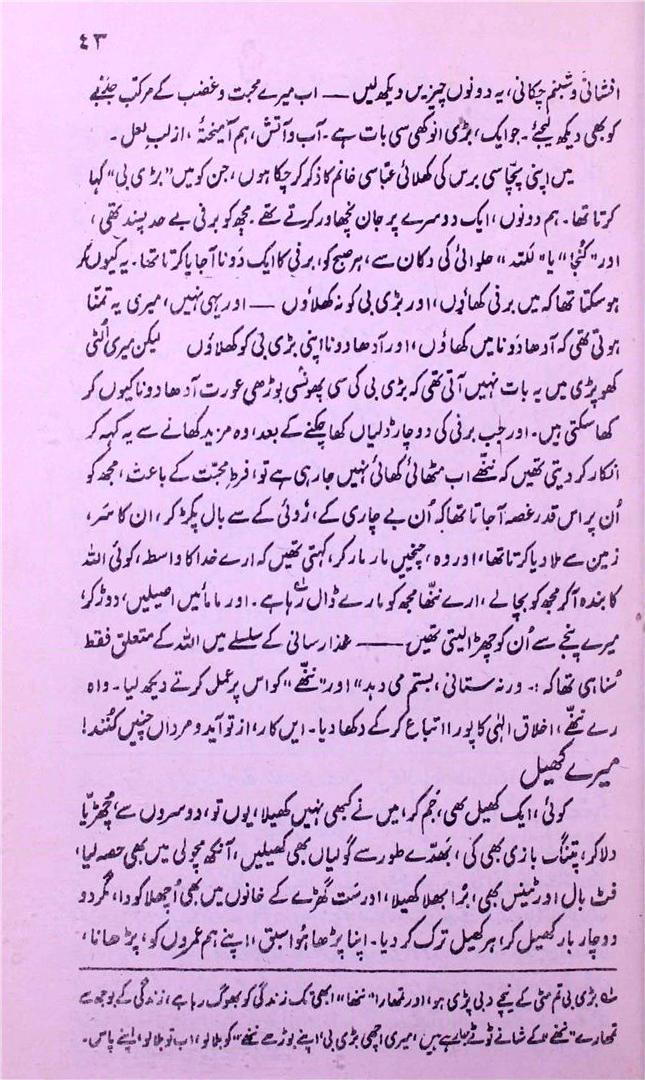 ٤٣
افشانی و شبنم چکانی، یہ دونوں چیزیں دیکھ لیں —— اب میرے محبت و غضب کے مرکّب جذبے
کو بھی دیکھ لیجئے۔ جو ایک، بڑی انوکھی سی بات ہے۔ آب و آتش، ہم آمیختۂ، از لبِ لعل۔
میں اپنی پچاسی برس کی کھلائی عبّاسی خانم کا ذکر کر چکا ہوں، جن کو میں "بڑی بی" کہا
کرتا تھا۔ ہم دونوں، ایک دوسرے پر جان نچھاور کرتے تھے۔ مجھ کو برفی بے حد پسند تھی،
اور "گنجا" یا "لکتہ" حلوائی کی دکان سے، ہر صبح کو، برفی کا ایک دَونا آ جایا کرتا تھا۔ یہ کیوں کر
ہو سکتا تھا کہ میں برفی کھاؤں، اور بڑی بی کو نہ کھلاؤں —— اور یہی نہیں، میری یہ تمنّا
ہوتی تھی کہ آدھا دَونا میں کھاؤں، اور آدھا دونا اپنی بڑی بی کو کھلاؤں لیکن میری اُلٹی
کھوپڑی میں یہ بات نہیں آتی تھی کہ بڑی بی کی سی پھونسی بوڑھی عورت آدھا دونا کیوں کر
کھا سکتی ہیں۔ اور جب برفی کی دو چار ڈلیاں کھا چکنے کے بعد، وہ مزید کھانے سے یہ کہہ کر
انکار کر دیتی تھیں کہ ننّھے اب مٹھائی کھائی نہیں جا رہی ہے تو، فرطِ محبّت کے باعث، مجھ کو
اُن پر اس قدر غصہ آ جاتا تھا کہ اُن بے چاری کے، رُوئی کے سے بال پکڑ کر، ان کا سَر،
زمین سے ملا دیا کرتا تھا، اور وہ، چیخیں مار مار کر، کہتی تھیں کہ ارے خدا کا واسطہ، کوئی اللہ
کا بندہ آ کر مجھ کو بچا لے، ارے ننّھا مجھ کو مارے ڈال رہا ہے۔ اور مامائیں اصیلیں، دوڑ کر،
میرے پنجے سے اُن کو چھڑا لیتی تھیں —— غذا رسانی کے سلسلے میں اللہ کے متعلق فقط
سُنا ہی تھا کہ :۔ ورنہ ستانی، بستم می دہد" اور "ننّھے" کو اس پر عمل کرتے دیکھ لیا۔ واہ
رے ننّھے، اخلاقِ الٰہی کا پورا اتباع کر کے دکھا دیا۔ ایں کار، از تو آید و مرداں چنیں کُنند!
میرے کھیل
کوئی، ایک کھیل بھی، جَم کر، میں نے کبھی نہیں کھیلا، یوں تو، دوسروں سے، چُھڑیّا
دلا کر، پتنگ بازی بھی کی، بھدّے طور سے گولیاں بھی کھیلیں، آنکھ مچولی میں بھی حصہ لیا،
فٹ بال اور ٹینس بھی، بُرا بھلا کھیلا، اور سَت گھڑے کے خانوں میں بھی اُچھلا کودا، مگر دو
دو چار بار کھیل کر، ہر کھیل ترک کر دیا۔ اپنا پڑھا ہُوا سبق، اپنے ہم عمروں کو، پڑھانا،
؎ بڑی بی تم مٹی کے نیچے دبی پڑی ہو، اور تمھارا "ننّھا" ابھی تک زندگی کو بھوگ رہا ہے، زندگی کے بوجھ سے
تمھارے "ننّھے" کے شانے ٹوٹے جا رہے ہیں، میری اچھی بڑی بی! اپنے بوڑھے ننّھے" کو بلا لو، اب تو بلا لو، اپنے پاس۔